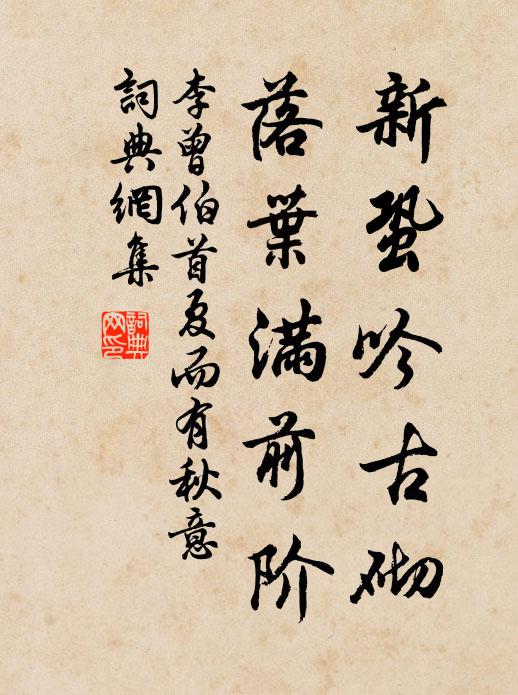 新蛩吟古砌
落葉满前阶
李曾伯首夏而有秋意
詞典網集
詞典
网印